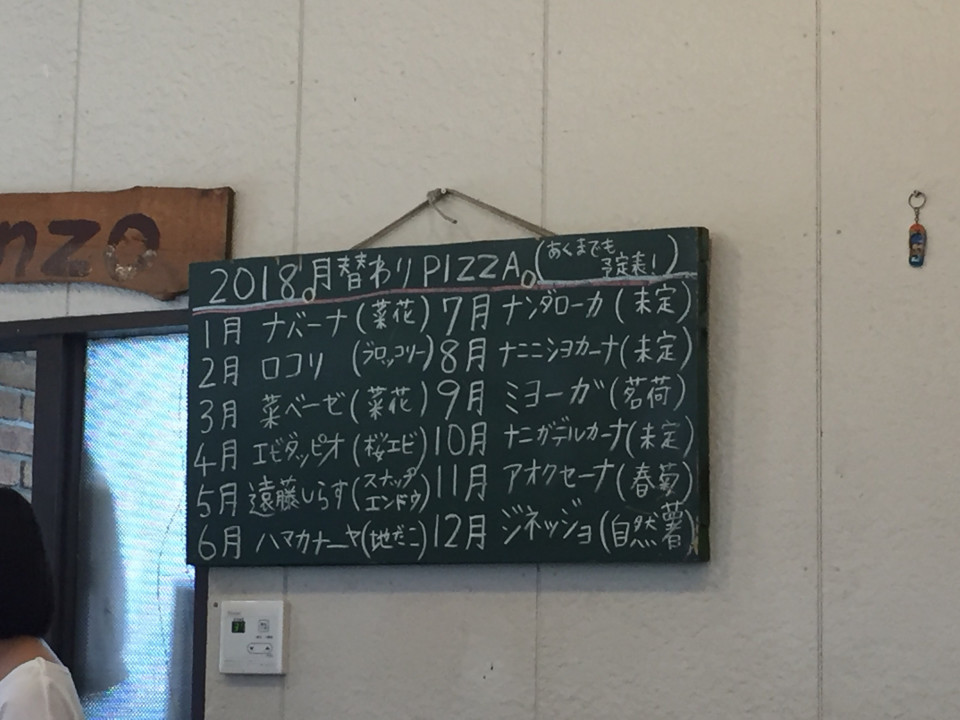 nzo
2018月替わりPIZZA(あくまでも
予定表!)
1月 ナバーナ(菜花)
2月 ロコリ (ブロッコリー)
3月 菜ベーゼ(菜花)
4月 エビダッピオ(桜エビ)
5月 遠藤しらす(スナップ
エンドウ)
6月 ハマカナーヤ(地だこ)
7月 ナンダローカ(未定)
8月 ナニニショカーナ(未定)
9月 ミヨーガ(茗荷)
10月 ナニガデルカーナ(未定)
11月 アオクセーナ(春菊)
12月 ジネッジョ(自然薯)